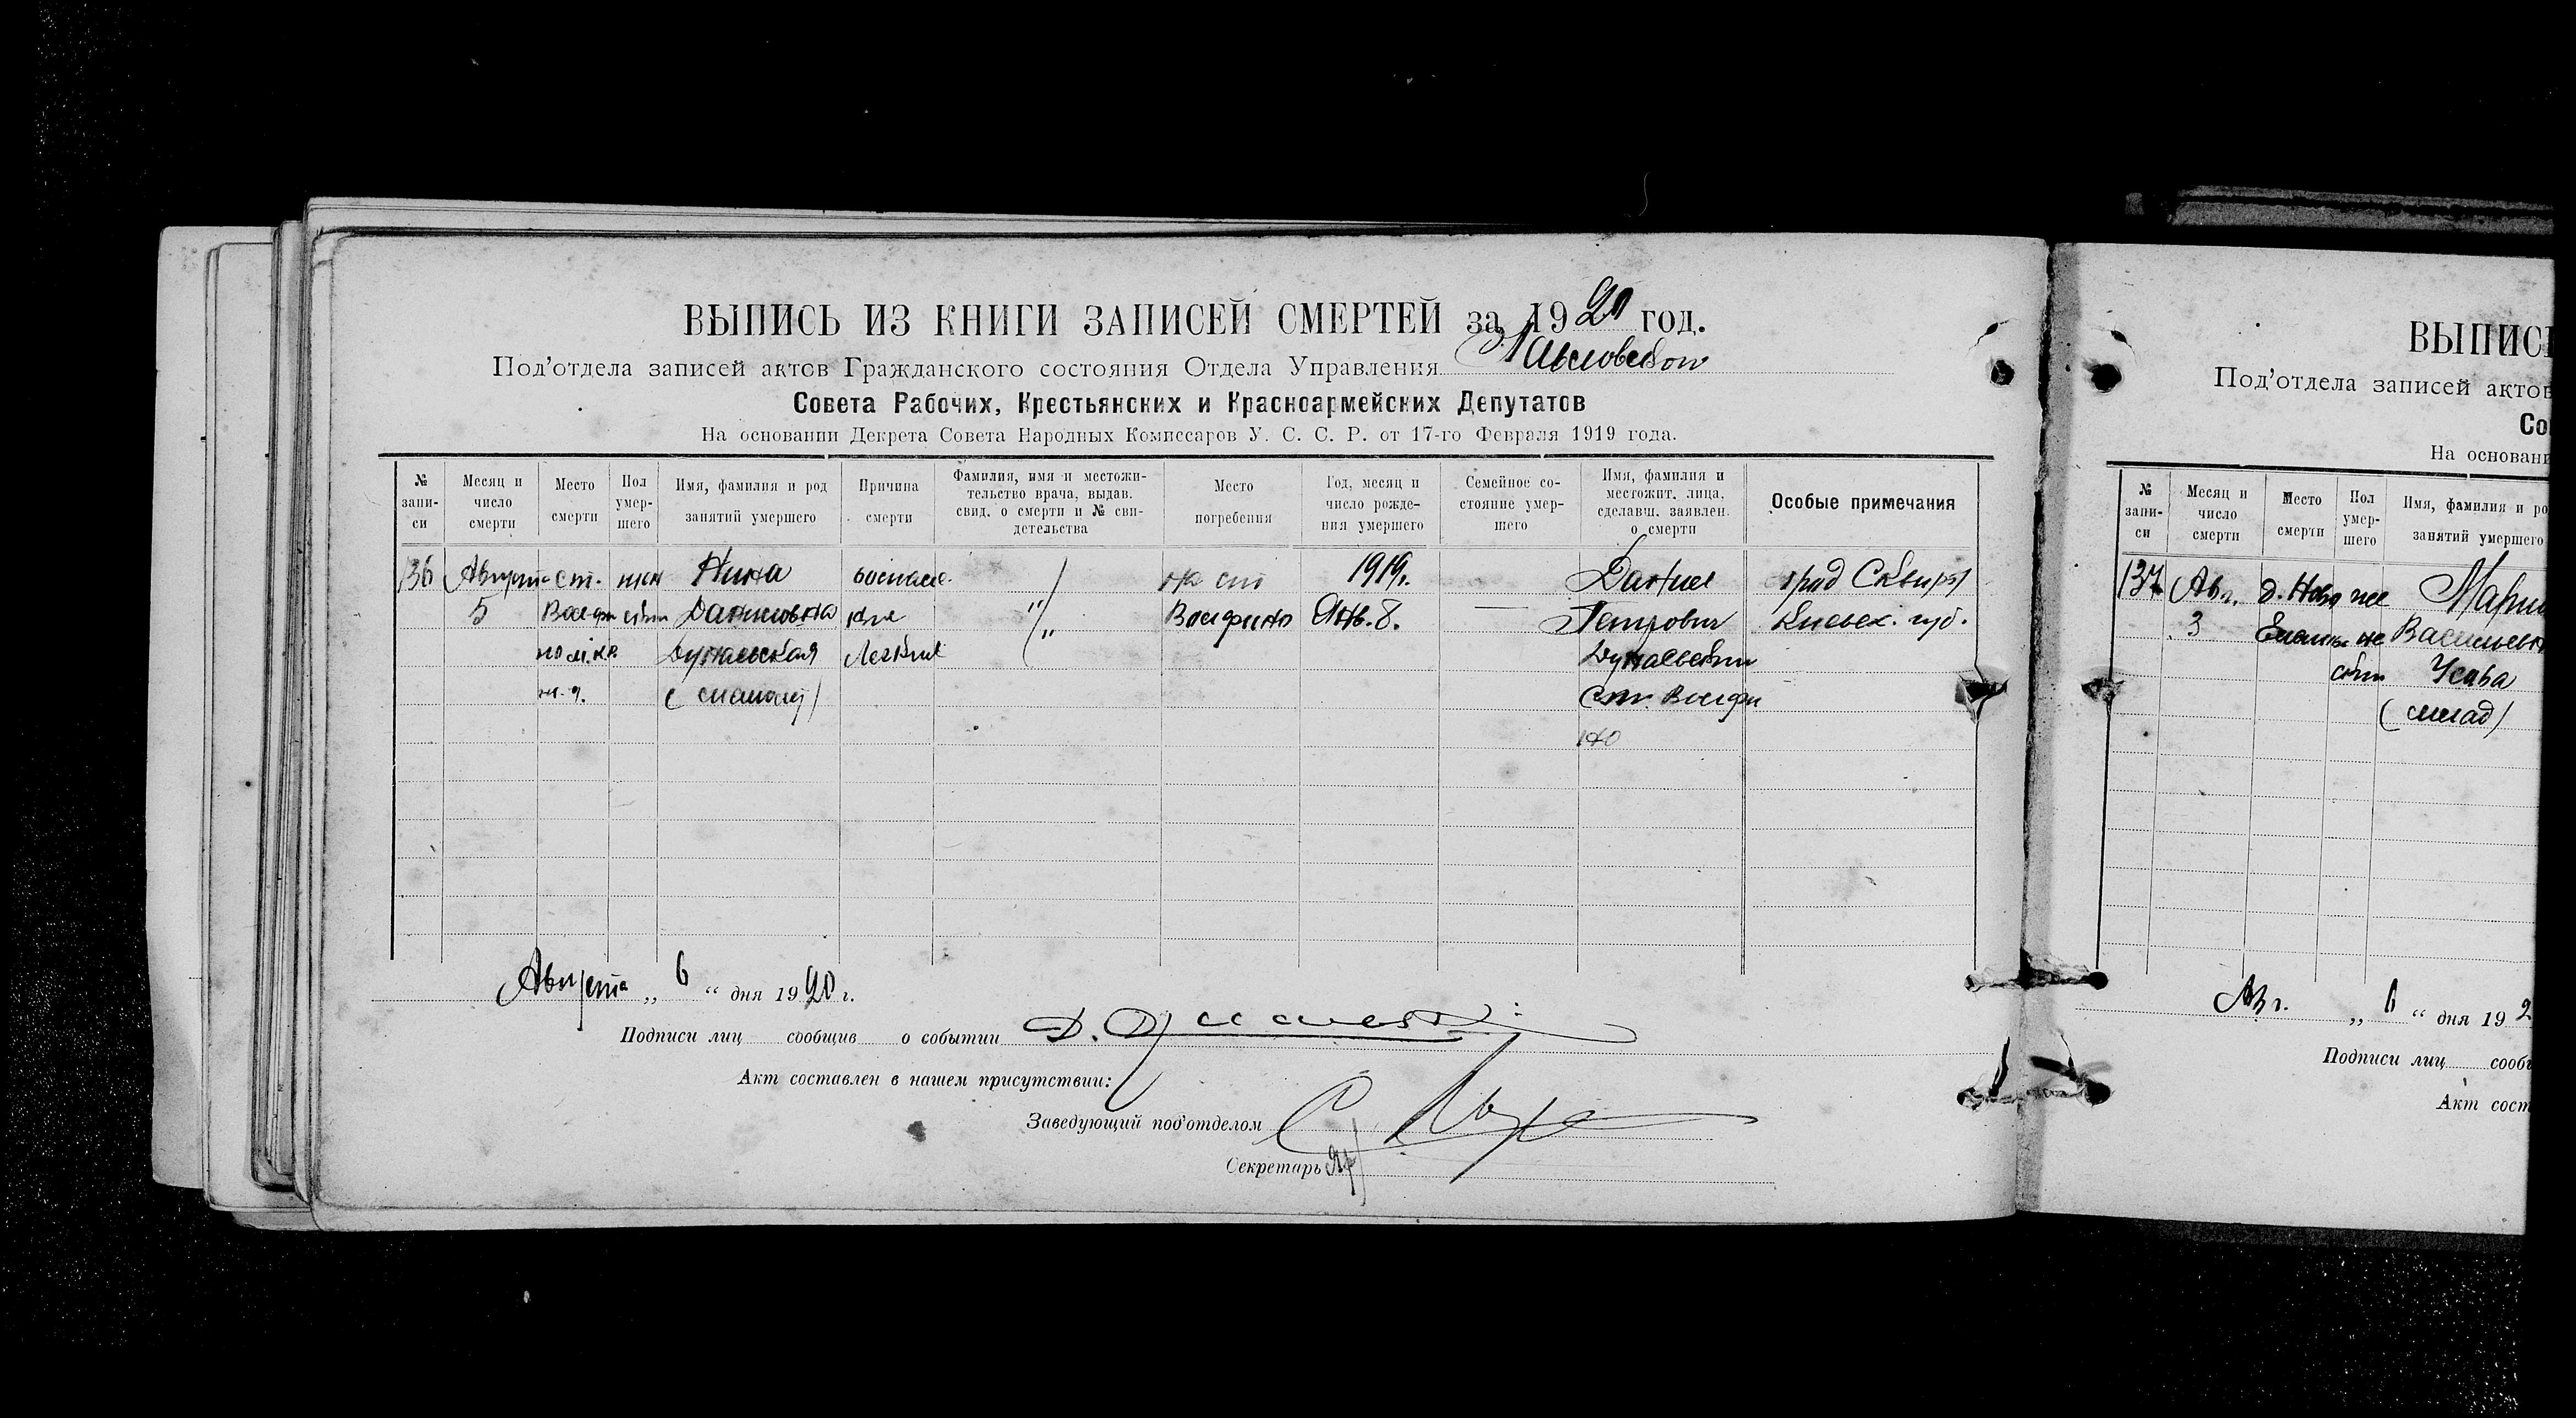 ВЫПИСЬ ИЗ КНИГИ ЗАПИСЕЙ СМЕРТЕЙ за 1920 год.
Под'отдела записей актов Гражданского состояния Отдела Управления
Совета Рабочих, Крестьянских и Красноармейских Депутатов
На основании Декрета Совета Народных Комиссаров У. С. С. Р. от 17-го Февраля 1919 года.
№ запи-си
Месяц и число смерти
Место смерти
Пол умер-шего
Имя, фамилия и род занятий умершего
Причина смерти
Фамилия, имя и местожи-тельство врача, выдав. свид. о смерти и № сви-детельства
Место погребения
Год, месяц и число рожде-ния умершего
Семейное со-стояние умер-шего
Имя, фамилия и местожит. лица, сделавш. заявлен. о смерти
Особые примечания
136 Август ст. жен Нина воспале- на ст 1919. Даниил град Сквиры
5 ский Даниловна ние Янв. 8. Петрович Киевск. губ.
Дунаевская Легких Дунаевский
м. д. ст.
но
Августа „ 6 “ дня 1920 г.
Подписи лиц сообщив о событии Д.
Акт составлен в нашем присутствии:
Заведующий под'отделом
Секретарь
ВЫПИС
Под'отдела записей актов
Со
На основани
№ запи-си
Месяц и число смерти
Место смерти
Пол умер-шего
Имя, фамилия и ро
занятий умершего
137 Авг. д. Ново Мари
3 Васильев
Усава
(млад)
Авг. „ 6 “ дня 192
Подписи лиц сооб
Акт сост